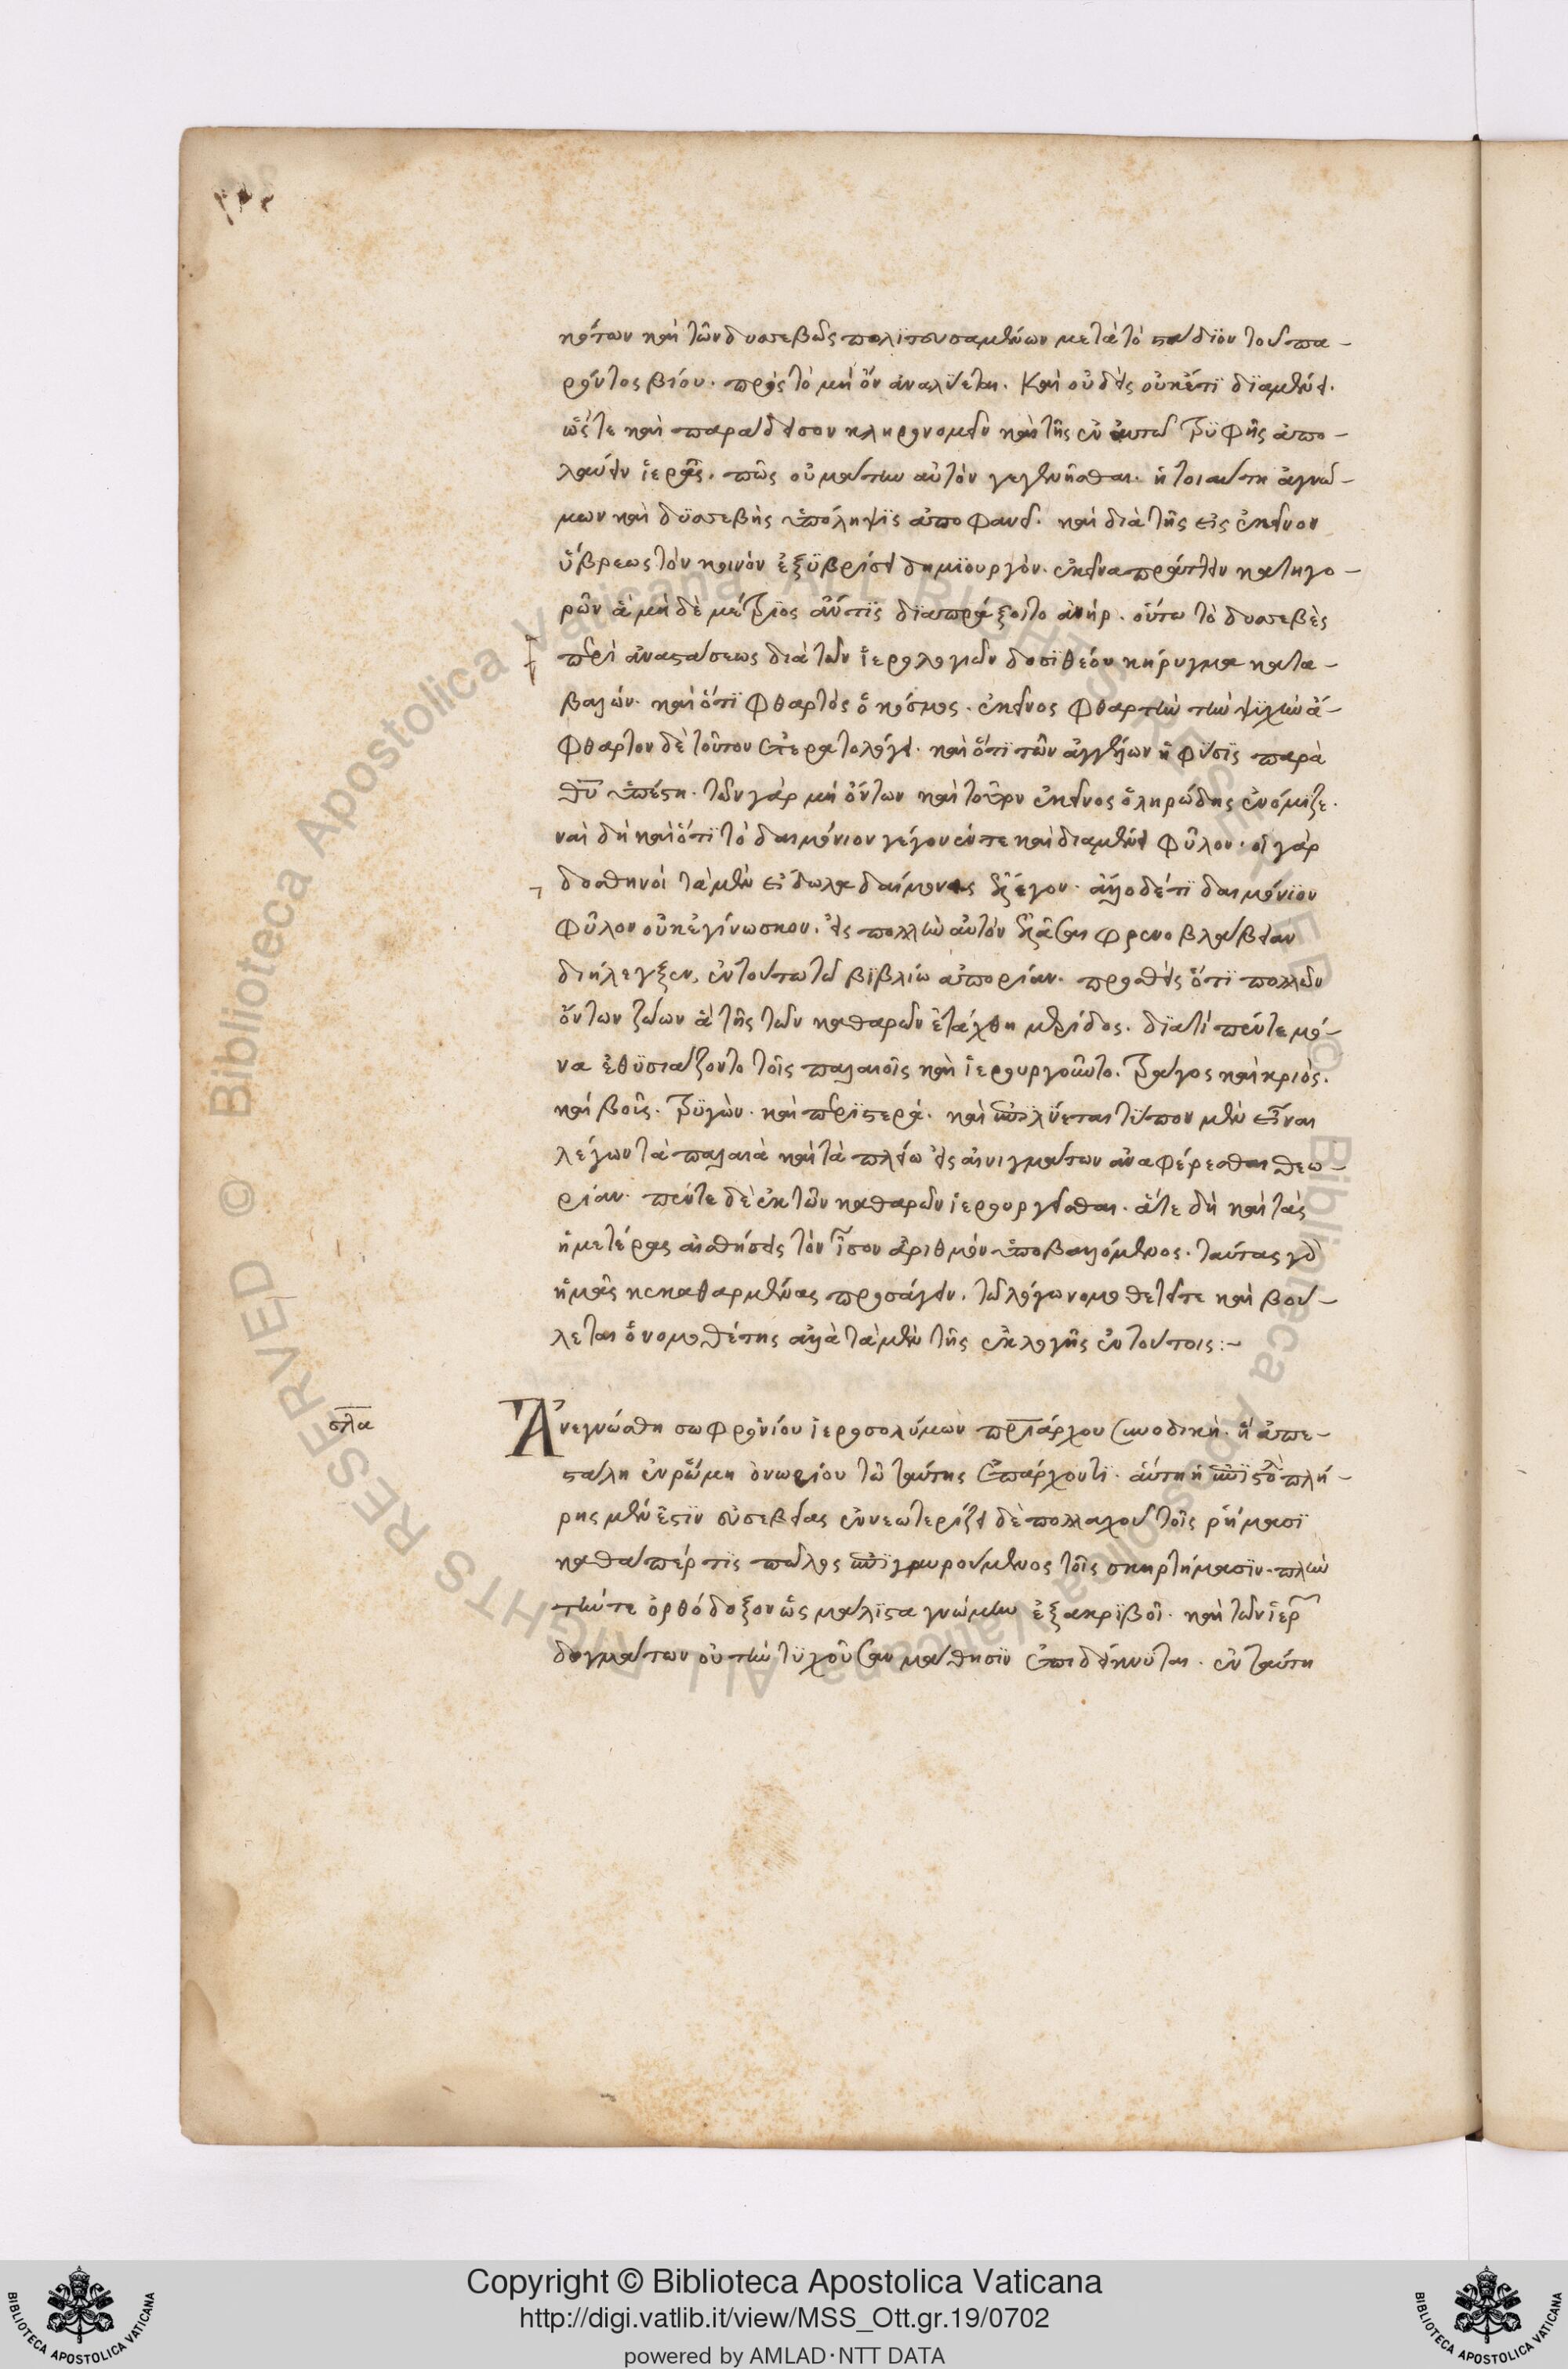 κότων καὶ τῶν δυσεβῶς πολϊτευσαμένων μετὰ τὸ στάδϊον τοῦ πα-
ρόντος βίου. πρὸς τὸ μὴ ὂν ἀναλΰεται. καὶ οὐδεὶς οὐκέτϊ δϊαμένει.
ὥστε καὶ παράδεισον κληρονομεῖν καὶ τῆς ἐν αὐτῶ τρϋφῆς ἀπο-
λαύειν ἱερᾶς. πῶς οὐ μάτην αὐτὸν γεγενῆσθαι. ἡ τοιαύτη ἀγνώ-
μων καὶ δϋσσεβὴς ὑπόληψϊς ἀποφανεῖ. καὶ διὰ τῆς εἰς ἐκεῖνον
ὕβρεως τὸν κοινὸν ἐξϋβρίσει δημϊουργὸν. ἐκεῖνα πράττειν κατηγο-
ρῶν ἃ μὴ δὲ μέτριος ἄν τϊς δϊαπράξοιτο ἀνήρ. οὕτω τὸ δυσεβὲς
περὶ ἀναστάσεως διὰ τῶν ἱερολογιῶν δοσϊθέου κήρυγμα κατα-
βαλών. καὶ ὅτϊ φθαρτὸς ὁ κόσμος. ἐκεῖνος φθαρτὴν τὴν ψϋχὴν ἄ-
φθαρτον δὲ τοῦτον ἐτερατολόγει. καὶ ὅτϊ τῶν ἀγγέλων ἡ φύσϊς παρὰ
θυ ὑπέστη. τῶν γὰρ μὴ ὄντων καὶ τοῦτον ἐκεῖνος ὁ ληρώδης ἐνόμϊζε.
ναὶ δὴ καὶ ὅτϊ τὸ δαιμόνιον γέγονέν τε καὶ διαμένει φῦλον. οἱ γὰρ
δοσθηνοὶ τὰ μὲν εἴδωλα δαίμονας ἔλεγον. ἄλλο δέ τϊ δαιμόνϊον
φῦλον οὐκ ἐγίνωσκον. εἰς πολλὴν αὐτὸν ἐλάσαι φρενοβλάβειαν
διήλεγξεν. ἐν τούτω τῶ βϊβλίω ἀπορίαν. προσθεὶς ὅτϊ πολλῶν
ὄντων ζώων ἃ τῆς τῶν καθαρῶν ἐτάχθη μερίδος. δϊατί πέντε μό-
να ἐθϋσιάζοντο τοῖς παλαιοῖς καὶ ἱερουργοῦντο. τράγος καὶ κριὸς.
καὶ βοῦς. τρϋγὼν. καὶ περϊστερά. καὶ ἐπιλΰεται τΰπον μὲν εἶναι
λέγων τὰ παλαιὰ καὶ τὰ πλείω εἰς αἰνιγμάτων ἀναφέρεσθαι θεω-
ρίαν. πέντε δὲ ἐκ τῶν καθαρῶν ἱερουργεῖσθαι. ἅτε δὴ καὶ τὰς
ἡμετέρας αἰσθήσεις τὸν ἶσον ἀριθμὸν ὑποβαλλόμενος. ταύτας γὰρ
ἡμᾶς κεκαθαρμένας προσάγειν. τῶ λόγω νομοθετεῖ τε καὶ βού-
λεται ὁ νομοθέτης ἀλλὰ τὰ μὲν τῆς ἐκλογῆς ἐν τούτοις:-
σλα
Ἀνεγνώσθη σωφρονίου ἱεροσολύμων πριάρχου συνοδικὴ. ἣ ἀπε-
στάλη ἐν ρώμη ὀνωρίου τῶ ταύτης ἐπάρχοντϊ. αὕτη ἡ ἐπϊστολὴ πλή-
ρης μὲν ἐστϊν εὐσεβείας ἐννεωτερίζει δὲ πολλαχοῦ τοῖς ρήμασϊ
καθάπέρ τϊς πῶλος ἐπϊγαυρούμενος τοῖς σκιρτήμασϊν. πλὴν
τήν τε ὀρθόδοξον ὡς μάλϊστα γνώμην ἐξακρϊβοῖ. καὶ τῶν ἱερ
δογμάτων οὐ τὴν τϋχοῦσαν μάθησϊν ἐπιδείκνϋται. ἐν ταύτη
Copyright © Biblioteca Apostolica Vaticana
http://digi.vatlib.it/view/MSS_Ott.gr.19/0702
powered by AMLAD·NTT DATA